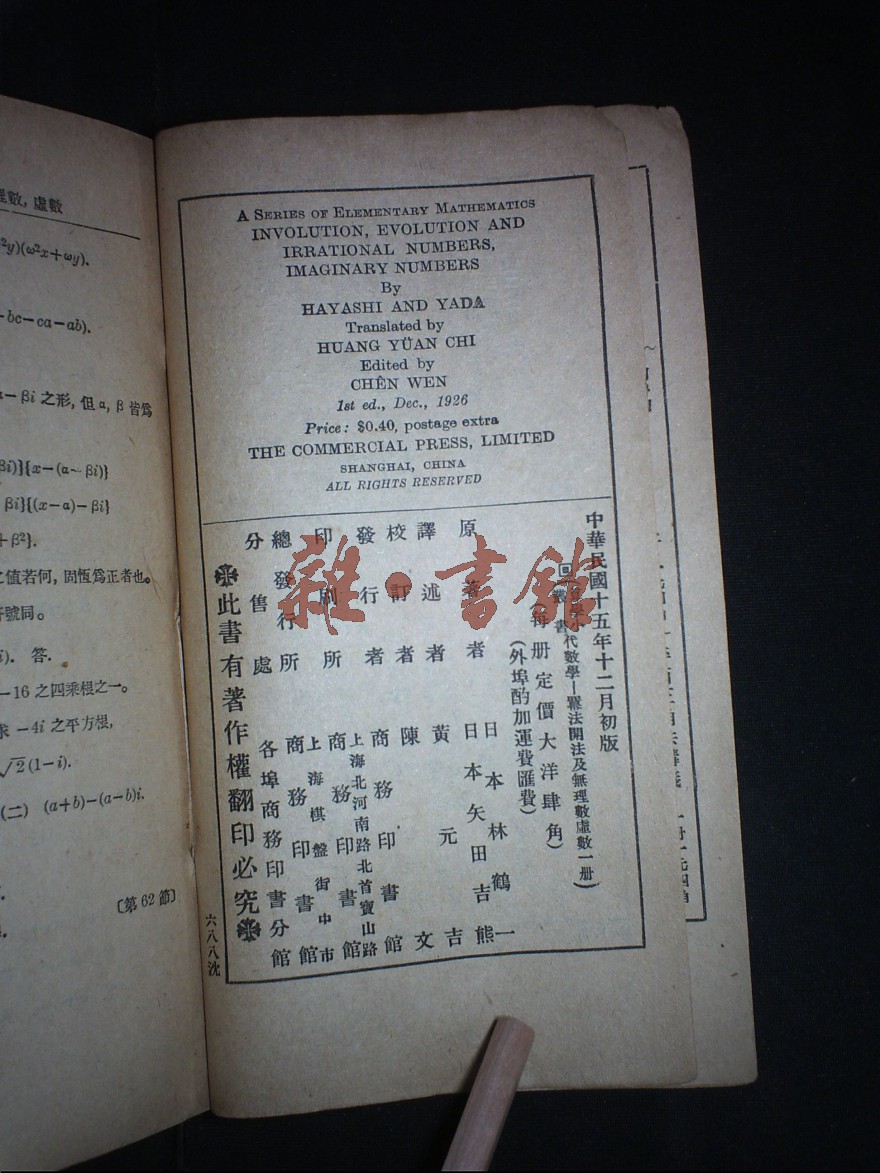 理數, 虛數
²y)(ω²x+ωy).
-bc-ca-ab).
-βi 之形, 但 α, β 皆爲
βi)}{x-(α-βi)}
βi}{(x-α)-βi}
+β²}.
之值若何, 固恆爲正者也。
號同。
答.
-16 之四乘根之一。
求 -4i 之平方根,
√2(1-i).
(二) (a+b)-(a-b)i.
〔第 62 節〕
A SERIES OF ELEMENTARY MATHEMATICS
INVOLUTION, EVOLUTION AND
IRRATIONAL NUMBERS,
IMAGINARY NUMBERS
By
HAYASHI AND YADA
Translated by
HUANG YÜAN CHI
Edited by
CHÊN WEN
1st ed., Dec., 1926
Price: $0.40, postage extra
THE COMMERCIAL PRESS, LIMITED
SHANGHAI, CHINA
ALL RIGHTS RESERVED
中華民國十五年十二月初版
叢書
小代數學—羃法開法及無理數虛數一册)
(每册定價大洋肆角)
(外埠酌加運費匯費)
原著者 日本林鶴一
日本矢田吉熊
譯述者 黃元吉
校訂者 陳文
發行者 商務印書館
印刷所 上海北河南路北首寶山路
商務印書館
總發行所 上海棋盤街中市
商務印書館
分售處 各埠商務印書分館
此書有著作權翻印必究
六八八沈
雜·書館